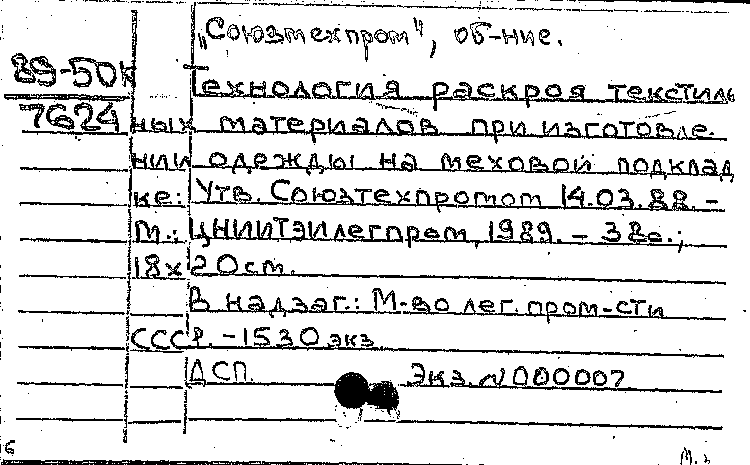 „Союзтехпром", об-ние.
89-50к
7624
Технология раскроя текстиль
ных материалов при изготовле-
нии одежды на меховой подклад
ке: Утв. Союзтехпромом 14.03.88. –
М.: ЦНИИТЭИлегпром, 1989. – 38с.;
18х20см.
В надзаг.: М-во лег. пром-сти
СССР. – 1530 экз.
ДСП. Экз. N 000007
6